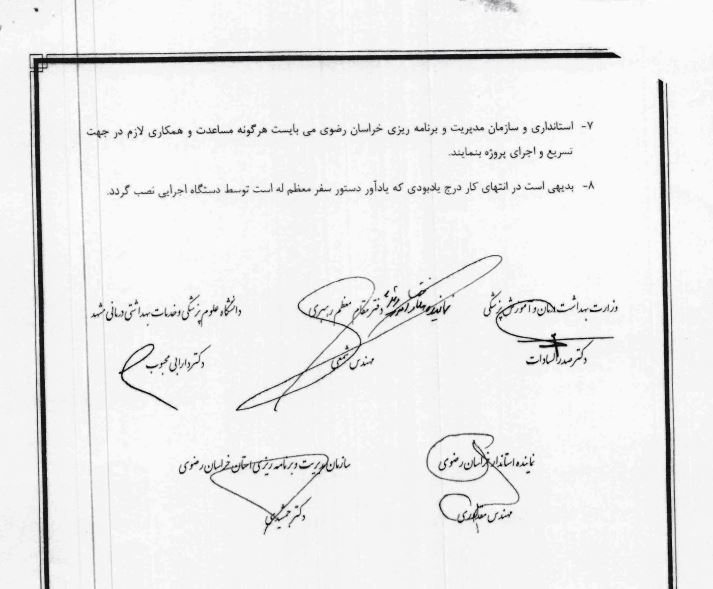 ۷- استانداری و سازمان مدیریت و برنامه ریزی خراسان رضوی می بایست هرگونه مساعدت و همکاری لازم در جهت
تسریع و اجرای پروژه بنمایند.
۸- بدیهی است در انتهای کار درج یادبودی که یادآور دستور سفر معظم له است توسط دستگاه اجرایی نصب گردد.
وزارت بهداشت درمان و آموزش پزشکی
نماینده دفتر مقام معظم رهبری
دانشگاه علوم پزشکی و خدمات بهداشتی درمانی مشهد
دکتر صدرالسادات
مهندس
دکتر دارابی محبوب
نماینده استاندار خراسان رضوی
سازمان مدیریت و برنامه ریزی استان خراسان رضوی
مهندس
دکتر جمشیدی